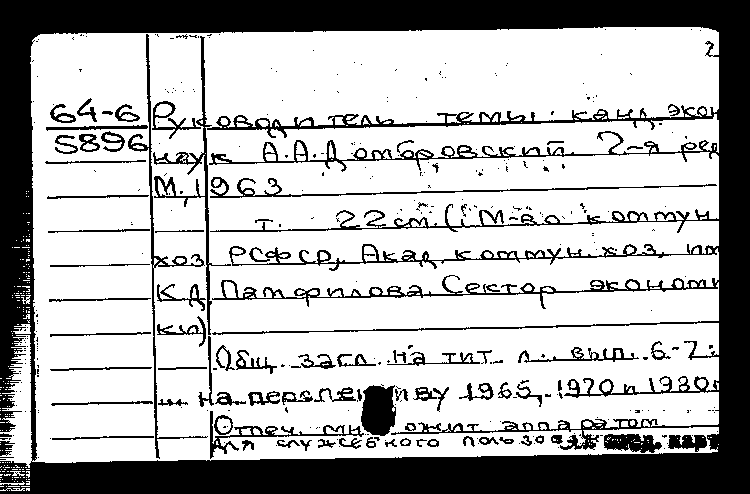 2
64-6 Руководитель темы: канд. экон
5896 наук А.А.Домбровский. 2-я ред
М., 1963
т. 22см. (М-во коммун
хоз РСФСР, Акад. коммун. хоз. им
К.Д. Памфилова. Сектор экономи
ки)
Общ. загл. на тит. л.. вып. 6-7:
... на перспективу 1965, 1970 и 1980
Отпеч. множит аппаратом
Для служебного